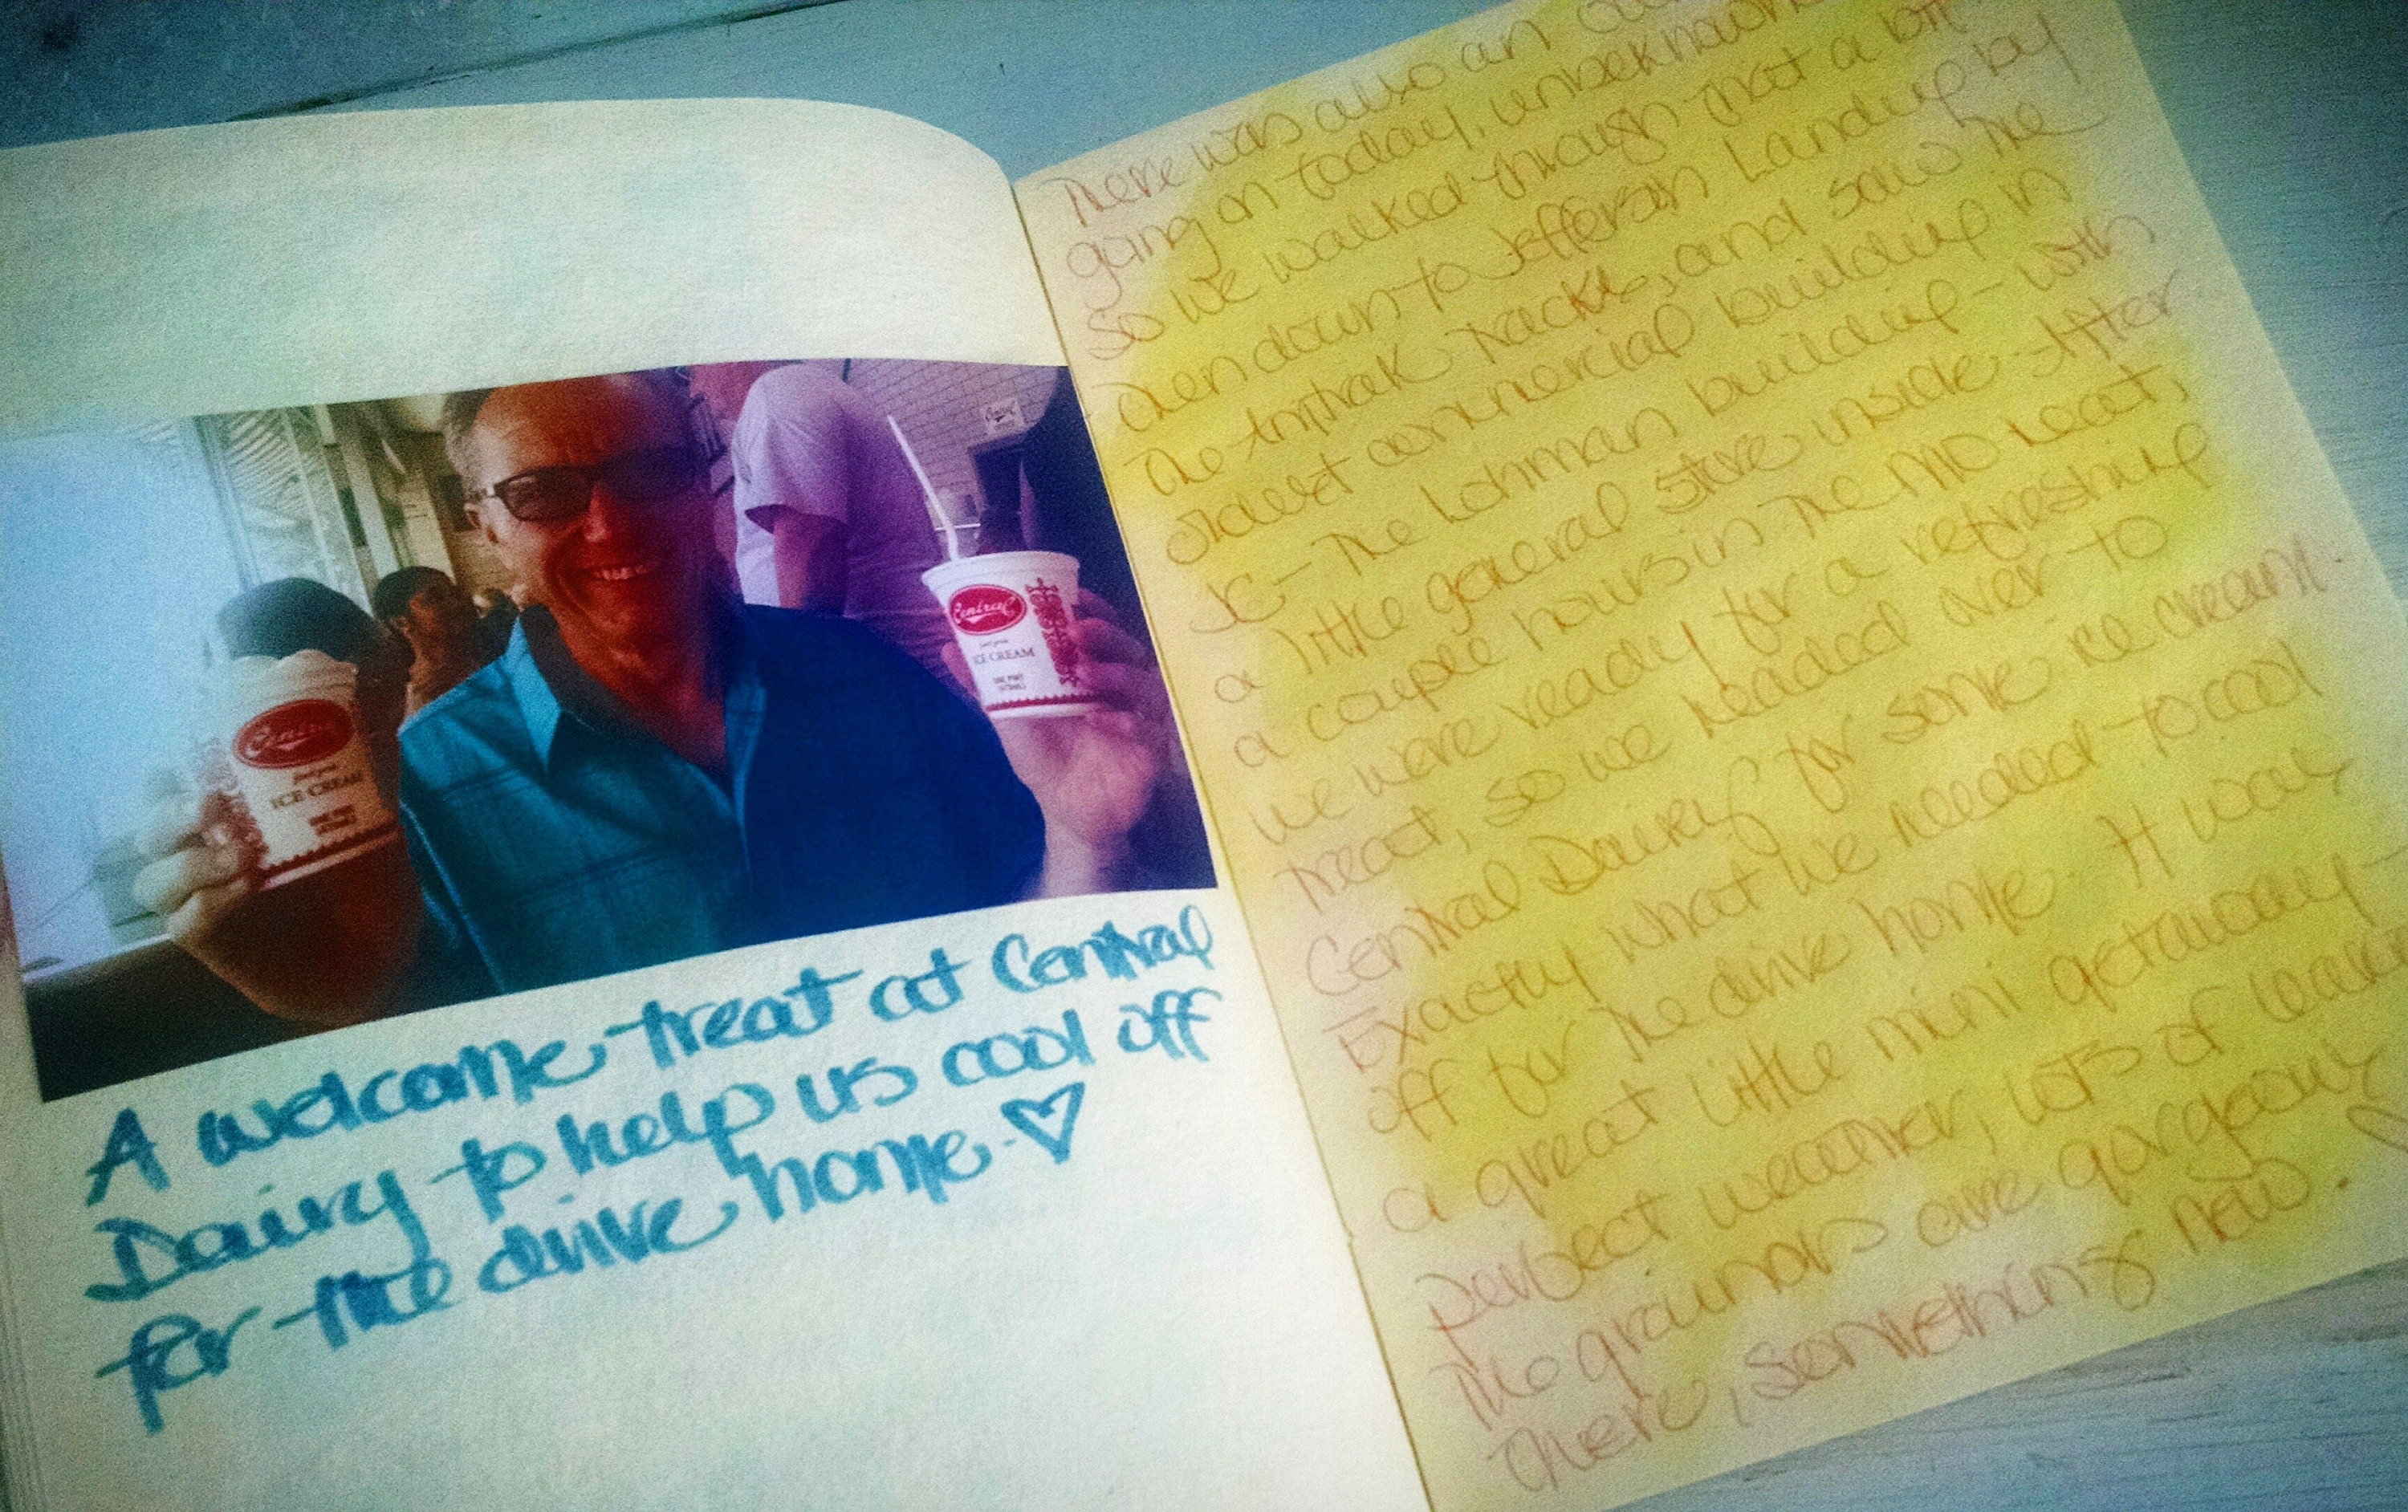 Central
ICE CREAM
ONE PINT
Central
ICE CREAM
ONE PINT
Central
A welcome treat at Central
Dairy to help us cool off
for the drive home. ♡
There was also an
going on today, unbeknownst
so we walked through that a bit
then down to Jefferson Landing by
the Amtrak tracks, and saw the
oldest commercial building in
JC - the Lohman building - with
a little general store inside. After
a couple hours in the MO heat,
we were ready for a refreshing
treat, so we headed over to
Central Dairy for some ice cream.
Exactly what we needed to cool
off for the drive home. It was
a great little mini getaway -
perfect weather, lots of
The grounds are gorgeous
there, something new. ♡